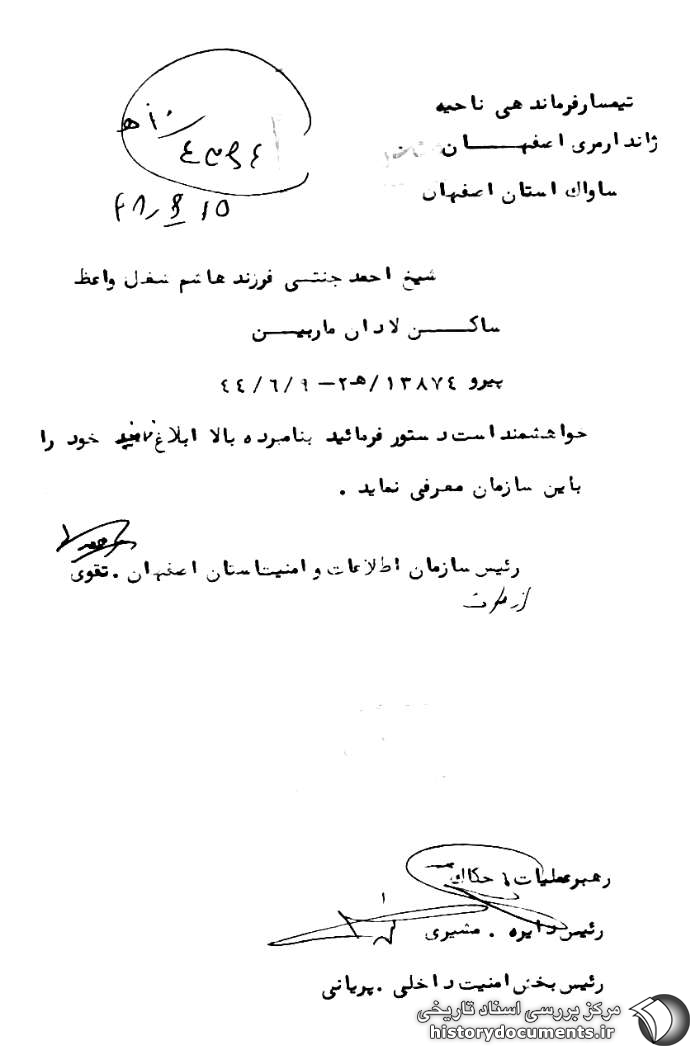 تیمسار فرماندهی ناحیه
ژاندارمری اصفهـــان
ساواک استان اصفهان
۱۰ هـ
۴۸ر۸ر۱۵
شیخ احمد جنتی فرزند هاشم شغل واعظ
ساکـــن لادان ماربیـــن
پیرو ۱۳۸۷۴/هـ۲ــ ۴۴/۶/۹
خواهشمند است دستور فرمائید بنامبرده بالا ابلاغ نمایند خود را
باین سازمان معرفی نماید .
رئیس سازمان اطلاعات و امنیت استان اصفهان . تقوی
از طرف
رهبر عملیات . حکاک
رئیس دایره . مشیری
رئیس بخش امنیت داخلی . پریانی
مرکز بررسی اسناد تاریخی
historydocuments.ir